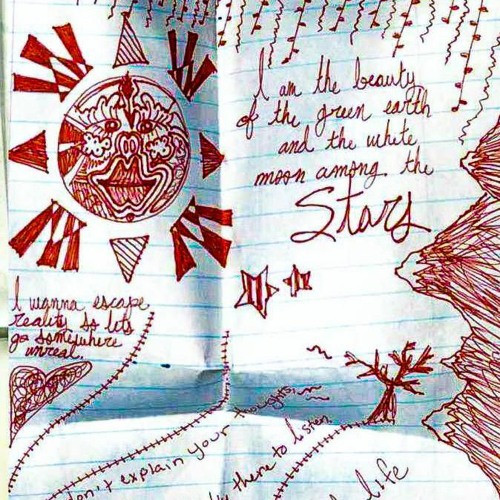 I am the beauty
of the green earth
and the white
moon among the
Stars
I wanna escape
reality so lets
go somewhere
unreal.
don't explain your thoughts,
there to listen
life